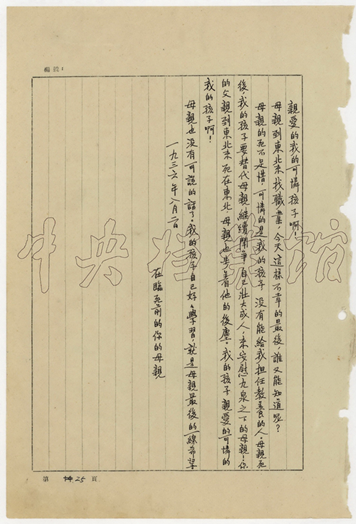 编号:
亲爱的我的可憐孩子啊!
母親到東北来找職業,今天這樣不幸的最後,誰又能知道呢?
母親的死不足惜,可憐的是我的孩子,沒有能給我担任教養的人。母親死
後,我的孩子要替代母親繼續鬥爭,自己壯大成人,来安慰九泉之下的母親!你
的父親到東北来死在東北,母親也步着他的後塵。我的孩子,親愛的可憐的
我的孩子啊!
母親也沒有可說的話了,我的孩子自己好好學習,就是母親最後的一線希望。
一九三六年八月二日
在臨死前的你的母親
中央档案馆
第 25 頁